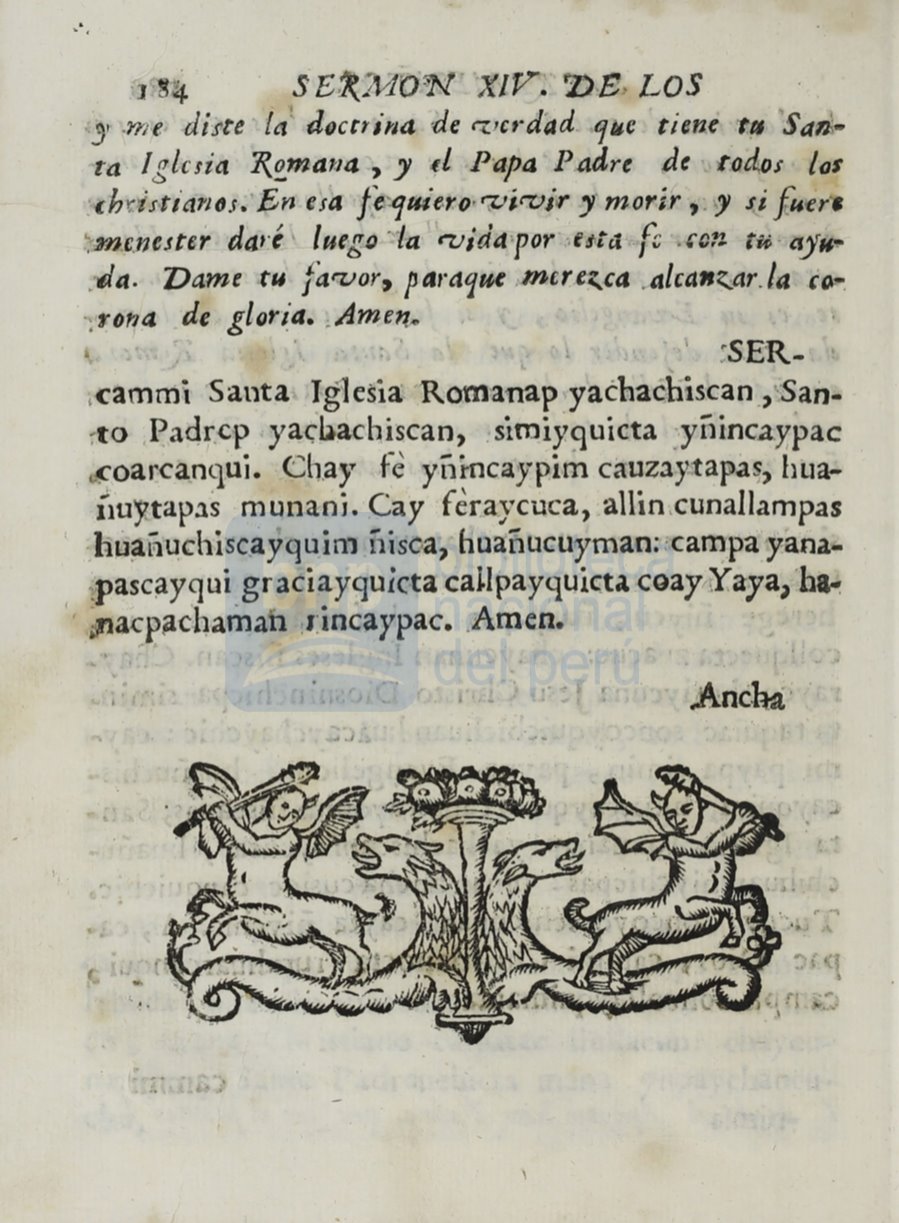 184 SERMON XIV. DE LOS
y me diste la doctrina de verdad que tiene tu San-
ta Iglesia Romana, y el Papa Padre de todos los
christianos. En esa fe quiero vivir y morir, y si fuere
menester daré luego la vida por esta fe con tu ayu-
da. Dame tu favor, paraque merezca alcanzar la co-
rona de gloria. Amen.
SER-
cammi Santa Iglesia Romanap yachachiscan, San-
to Padrep yachachiscan, simiyquicta yñincaypac
coarcanqui. Chay fè yñincaypim cauzaytapas, hua-
ñuytapas munani. Cay fèraycuca, allin cunallampas
huañuchiscayquim ñisca, huañucuyman: campa yana-
pascayqui graciayquicta callpayquicta coay Yaya, ha-
nacpachaman rincaypac. Amen.
Ancha
biblioteca
nacional
del perú